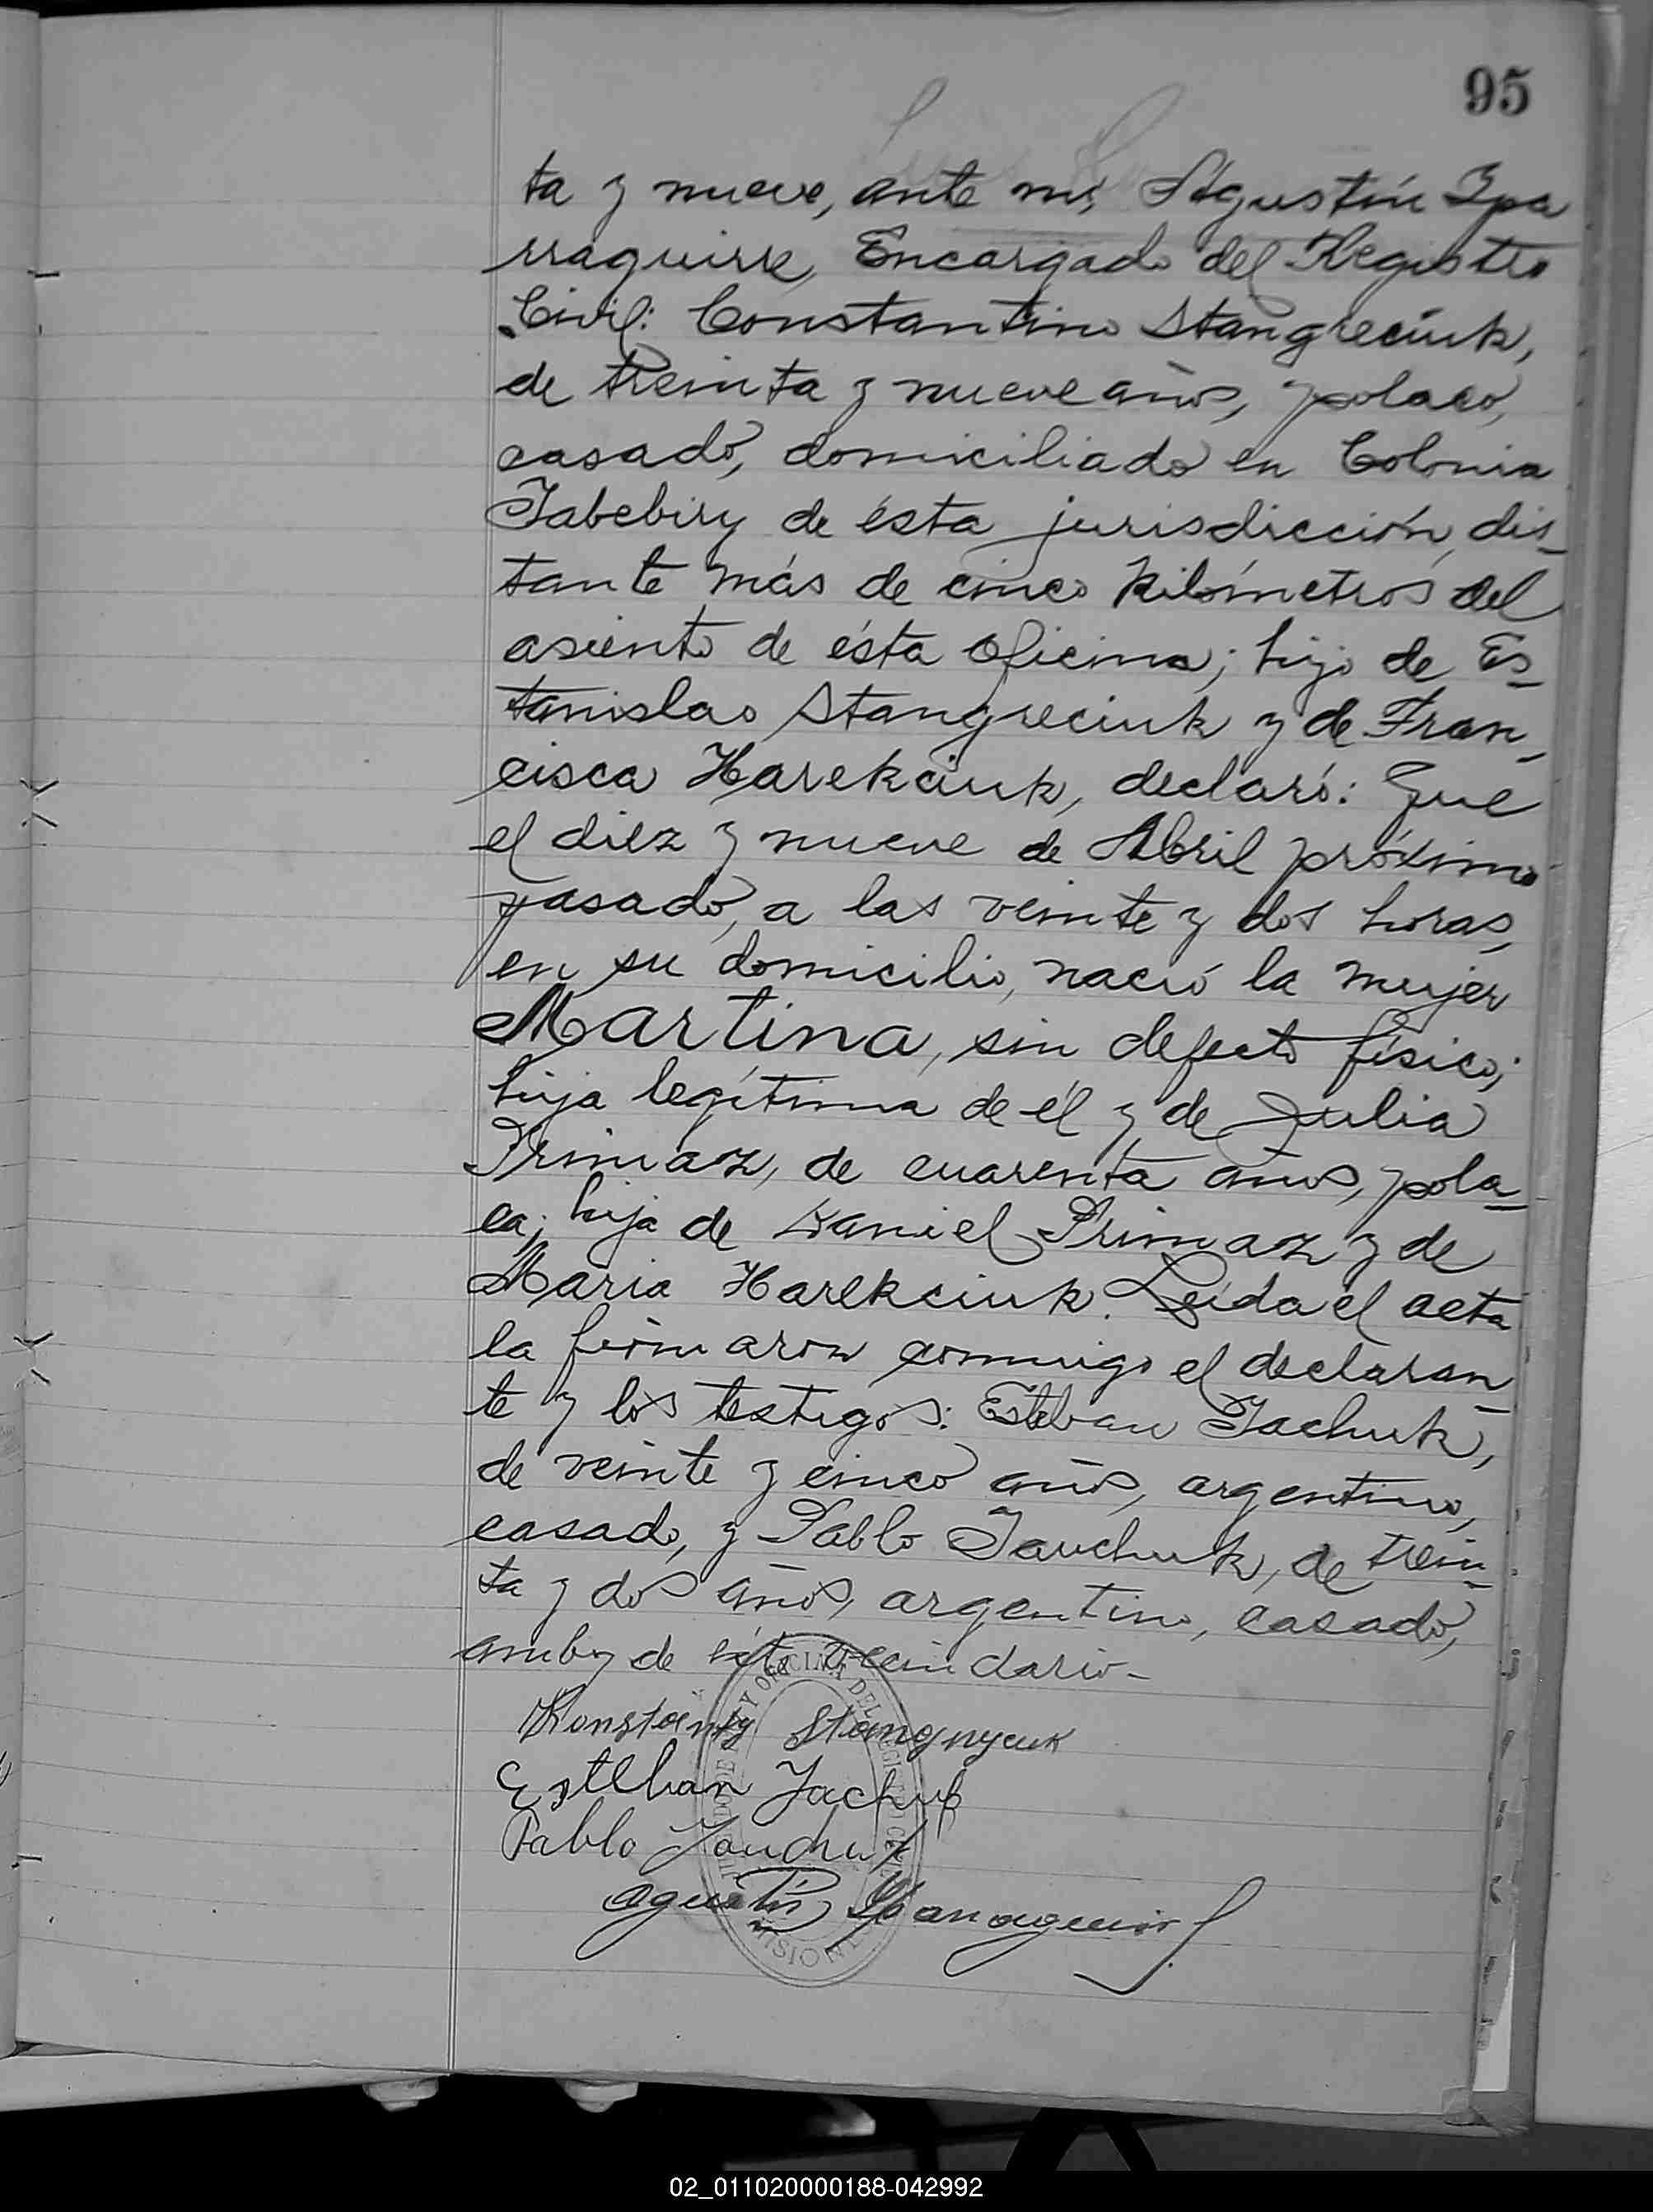 95
ta y nueve, ante mi, Agustín Ypa
rraguirre, Encargado del Registro
Civil: Constantino Stangreciuk,
de treinta y nueve años, polaco,
casado, domiciliado en Colonia
Yabebiry de ésta jurisdicción, dis-
tante más de cinco kilómetros del
asiento de ésta oficina; hijo de Es-
tanislao Stangreciuk y de Fran-
cisca Harekciuk, declaró: Que
el diez y nueve de Abril próximo
pasado, a las veinte y dos horas,
en su domicilio, nació la mujer
Martina, sin defecto físico;
hija legítima de él y de Julia
Primaz, de cuarenta años, pola-
ca; hija de Daniel Primaz y de
Maria Harekciuk. Leída el acta
la firmaron conmigo el declaran-
te y los testigos: Esteban Jachuk,
de veinte y cinco años, argentino,
casado, y Pablo Jauchuk, de trein-
ta y dos años, argentino, casado,
ambos de éste vecindario-
Konstanty Stangryciuk
Esteban Jachuk
Pablo Jauchuk
Agustín Yparraguirre
OFICINA DEL REGISTRO CIVIL
MISIONES
02_011020000188-042992